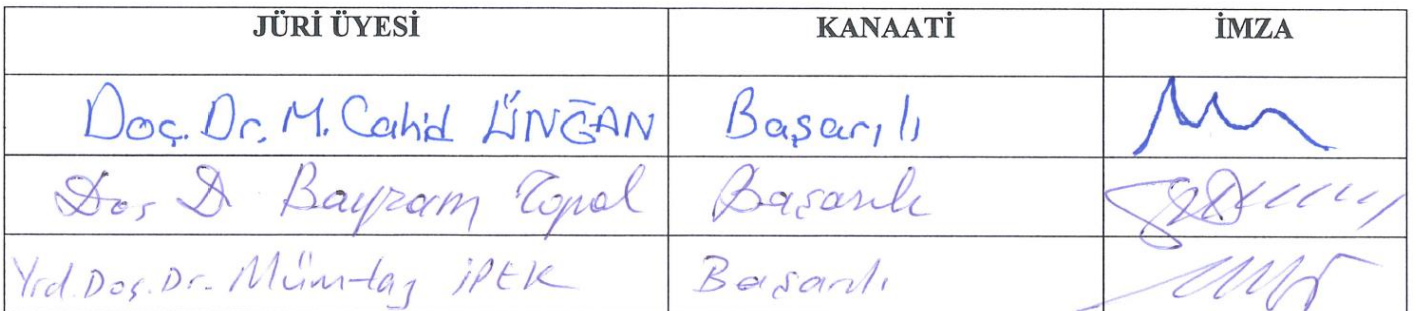 JÜRİ ÜYESİ KANAATİ İMZA
Doç. Dr. M. Cahid ÜNĞAN Başarılı
Doç D Bayram Topal Başarılı
Yrd. Doç. Dr. Mümtaz İPEK Başarılı